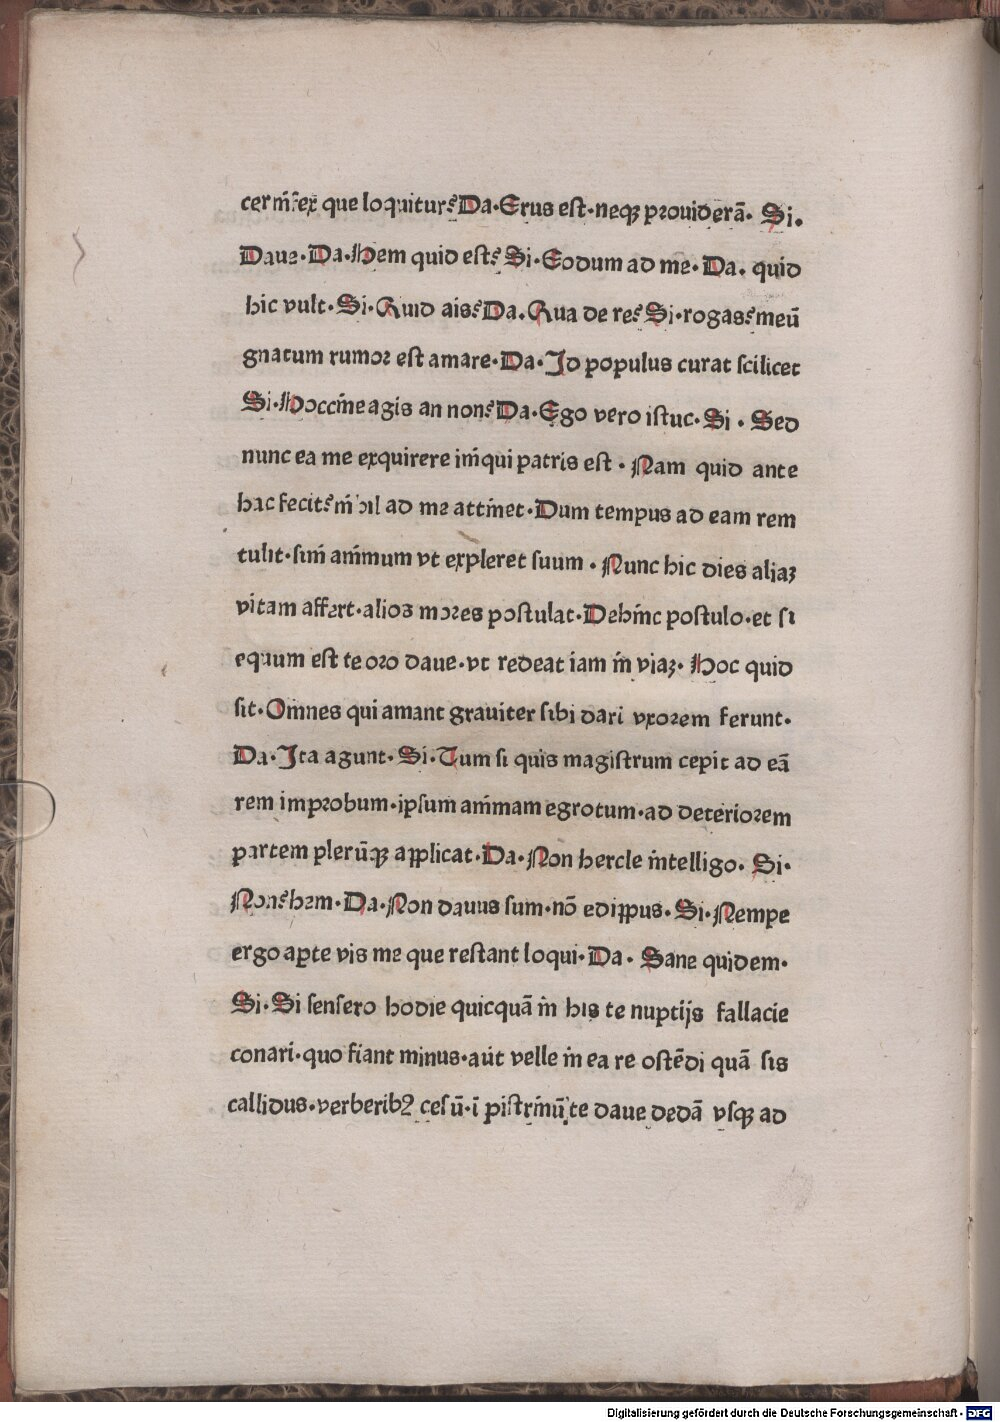 cernifex que loquitur? Da·Erus est·neqꝫ prouiderā· Si·
Daue·Da·Hem quid est? Si·Eodum ad me·Da· quid
hic vult·Si·Quid ais? Da·Qua de re? Si·rogas? meū
gnatum rumor est amare·Da·Id populus curat scilicet
Si·Hoccine agis an non? Da·Ego vero istuc·Si · Sed
nunc ea me exquirere iniqui patris est · Nam quid ante
hac fecit? nihil ad me attinet·Dum tempus ad eam rem
tulit·sini animum vt expleret suum · Nunc hic dies aliaꝫ
vitam affert·alios mores postulat·Dehinc postulo·et si
equum est te oro daue·vt redeat iam in viaꝫ· Hoc quid
sit·Omnes qui amant grauiter sibi dari vxorem ferunt·
Da·Ita agunt·Si·Tum si quis magistrum cepit ad eā
rem improbum·ipsum animam egrotum·ad deteriorem
partem plerūqꝫ applicat·Da·Non hercle intelligo· Si·
Non? hem·Da·Non dauus sum·nō edippus·Si·Nempe
ergo apte vis me que restant loqui·Da· Sane quidem·
Si·Si sensero hodie quicquā in his te nuptijs fallacie
conari·quo fiant minus·aut velle in ea re ostēdi quā sis
callidus·verberibꝰ cesū·ī pistrinū te daue dedā vsqꝫ ad
Digitalisierung gefördert durch die Deutsche Forschungsgemeinschaft - DFG